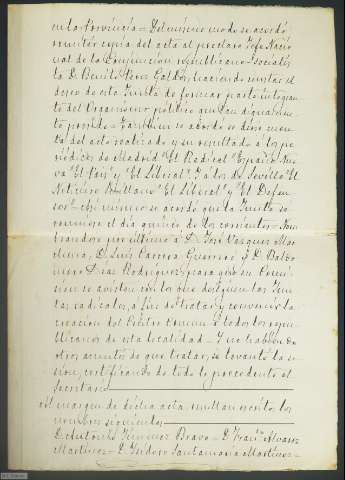 en la Provincia = Del mismo modo se acordó
remitir copia del acta al preclaro Jefe Nacio
nal de la Conjunción republicano-socialis
ta D. Benito Pérez Galdós, haciendo constar el
deseo de esta Junta de formar parte integran
te del Organismo político que tan dignamen
te preside = También se acordó se diese cuen
ta del acto realizado y su resultado a los pe
riódicos de Madrid "El Radical" España Nue
va "El País" y "El Liberal" y a los de Sevilla "El
Noticiero Sevillano" "El Liberal" y "El
Asi mismo se acordó que la Junta se
reuniera el día quince de los corrientes = Nom
brándose por último a D. José Vázquez
D. Luis Carrera Guerrero y D. Baldo
mero Díaz Rodríguez, para que en Comi
sión se avisten con los que designen las Jun
tas radicales, a fin de tratar y convenir la
creación del Centro Común a todos los repu
blicanos de esta localidad = Y no habiendo
otros asuntos de que tratar, se levantó la se
sión, certificando de todo lo precedente el
Secretario
Al margen de dicha acta, resultan escritos los
nombres siguientes
D. Antonio Jiménez Bravo = D. Franco Alvarez
Martínez = D. Isidoro Santamaría Martínez =